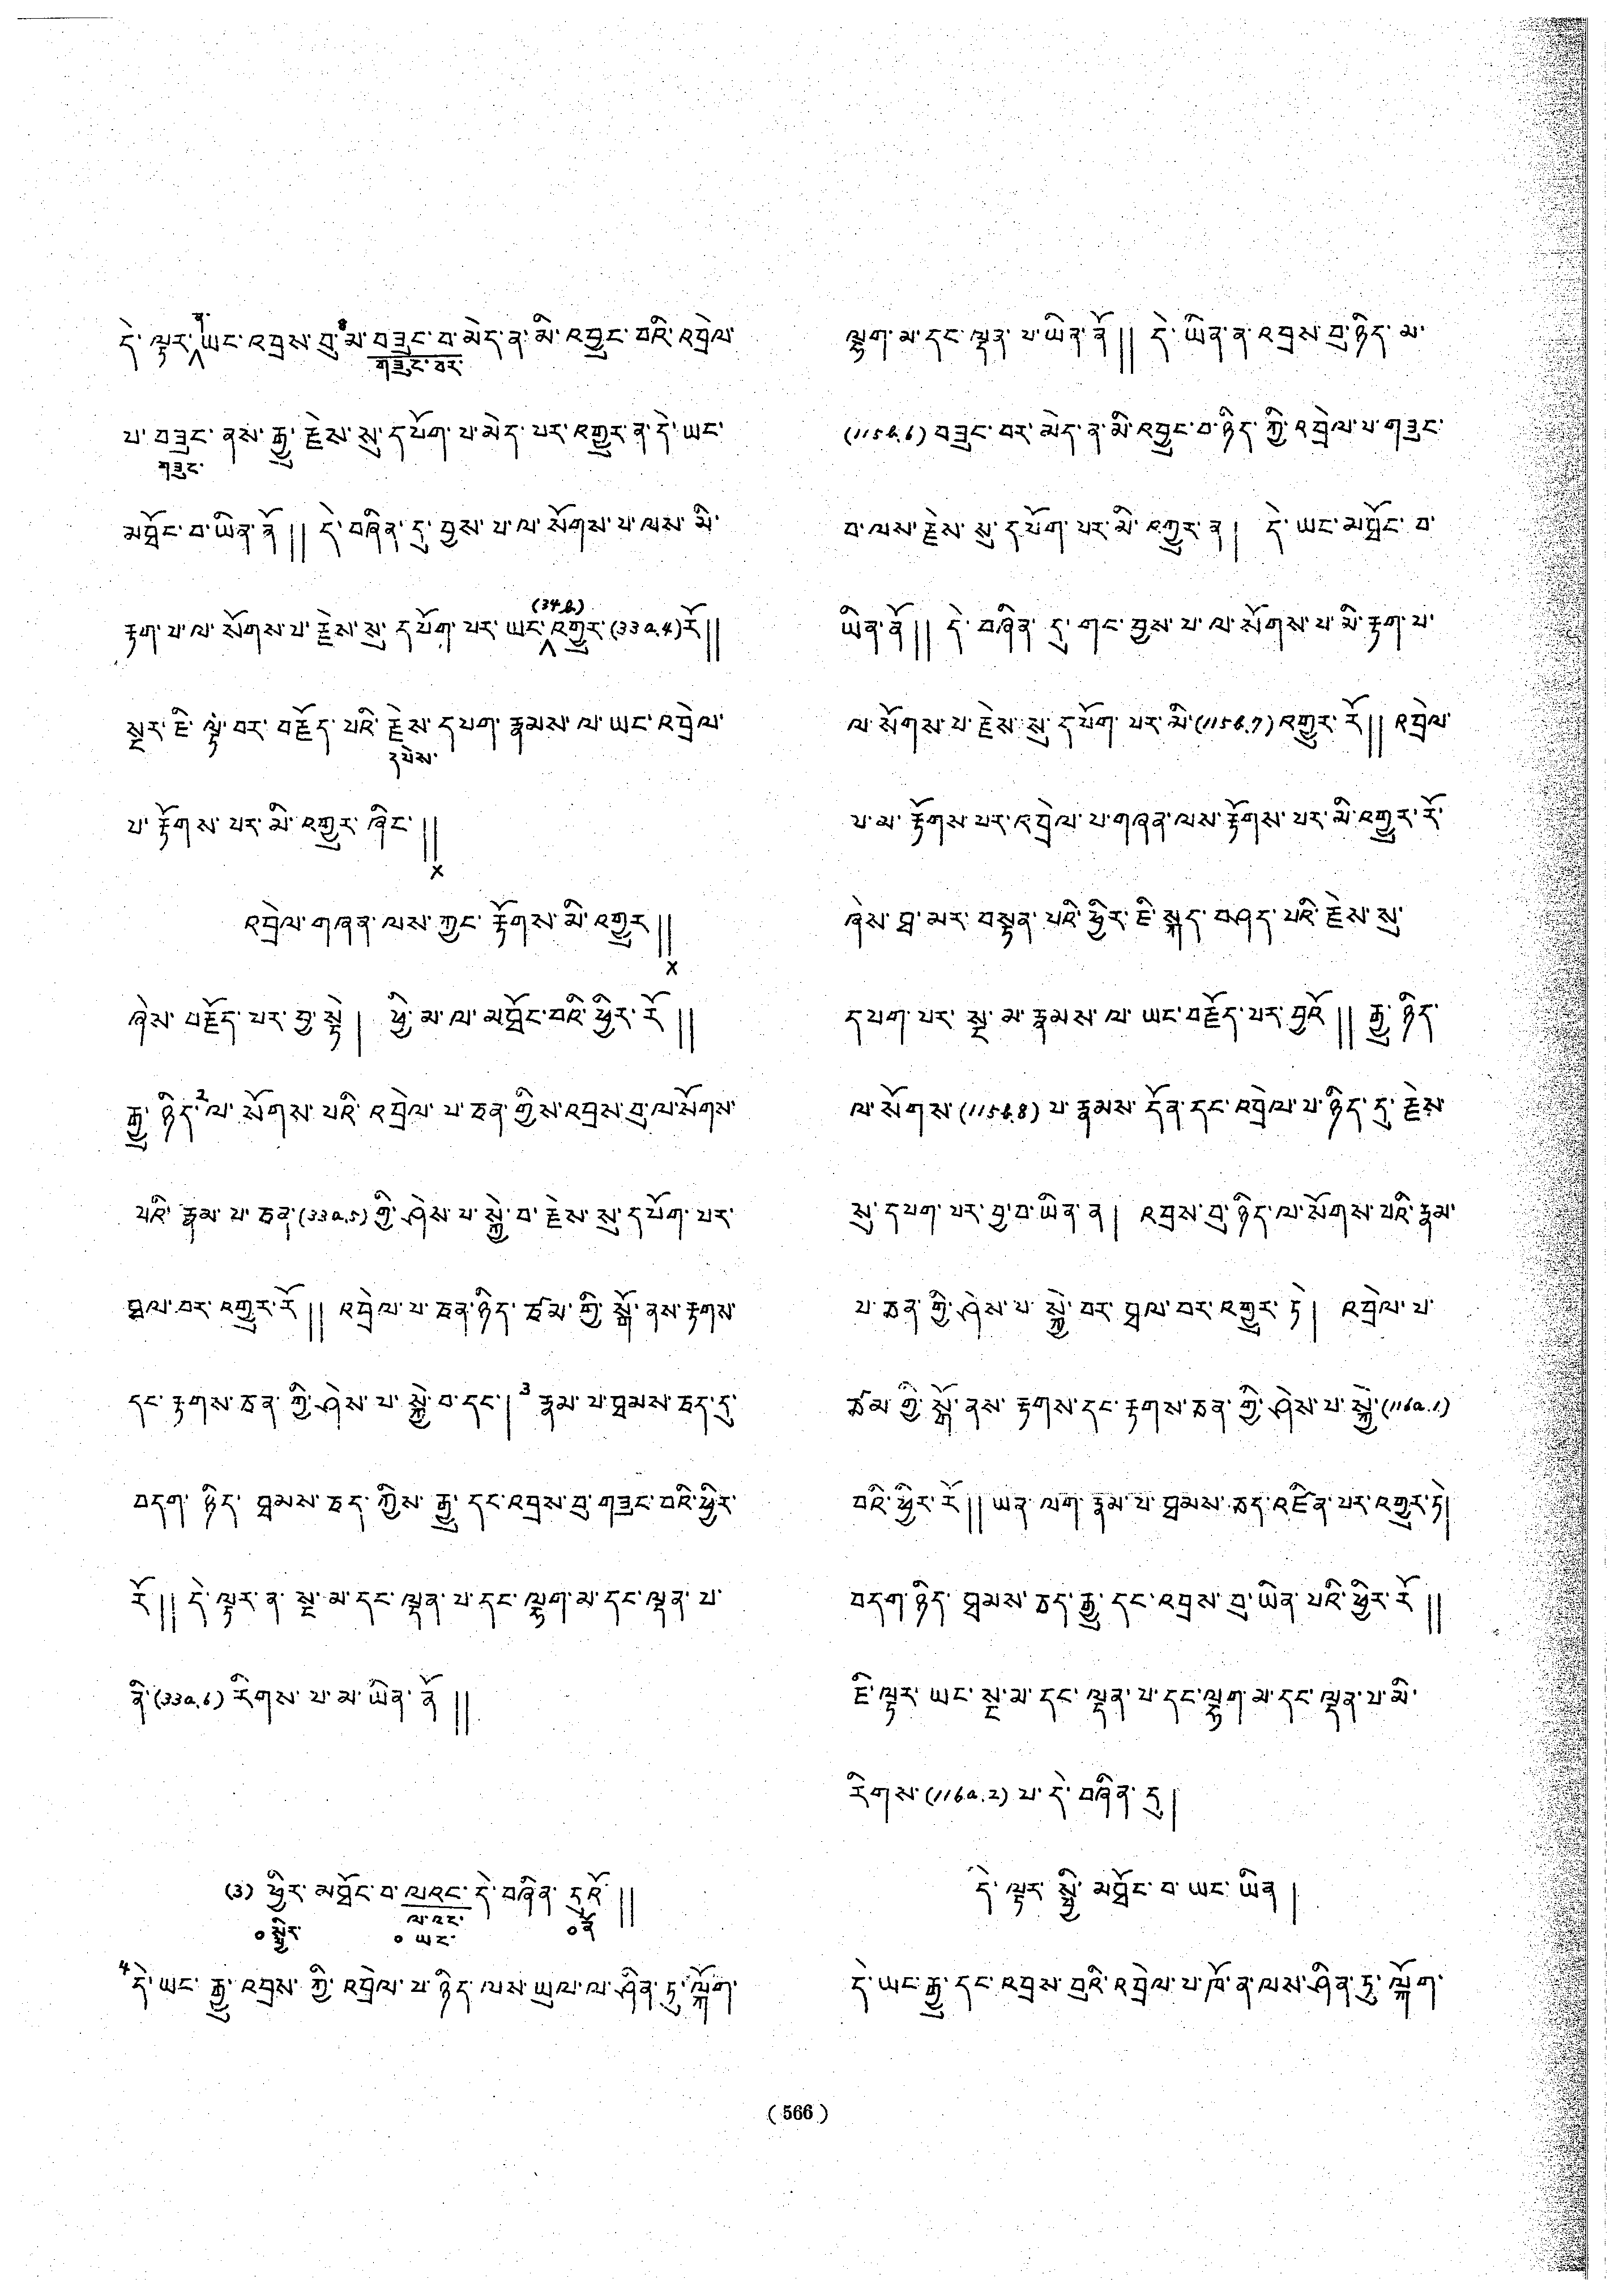 དེ་ ལྟར་ ནི་ ཡང་ འབྲས་ བུ་ མ་ བཟུང་ བ་ མེད་ ན་ མི་ འབྱུང་ བའི་ འབྲེལ་
གཟུང་ བར་
པ་ བཟུང་ ནས་ རྒྱུ་ རྗེས་ སུ་ དཔོག་ པ་ མེད་ པར་ འགྱུར་ ན་ དེ་ ཡང་
གཟུང་
མཐོང་ བ་ ཡིན་ ནོ།། དེ་ བཞིན་ དུ་ བྱས་ པ་ ལ་ སོགས་ པ་ ལས་ མི་
(34b)
རྟག་ པ་ ལ་ སོགས་ པ་ རྗེས་ སུ་ དཔོག་ པར་ ཡང་ འགྱུར་ (33a,4) རོ།།
སྔར་ ཇི་ ལྟ་ བར་ བརྗོད་ པའི་ རྗེས་ དཔག་ རྣམས་ ལ་ ཡང་ འབྲེལ་
དཔེས་
པ་ རྟོགས་ པར་ མི་ འགྱུར་ ཞིང་།།
x
འབྲེལ་ གཞན་ ལས་ ཀྱང་ རྟོགས་ མི་ འགྱུར།།
x
ཞེས་ བརྗོད་ པར་ བྱ་ སྟེ། ཕྱི་ མ་ ལ་ མཐོང་ བའི་ ཕྱིར་ རོ།།
རྒྱུ་ ཉིད་ ²ལ་ སོགས་ པའི་ འབྲེལ་ པ་ ཅན་ གྱིས་ འབྲས་ བུ་ ལ་ སོགས་
པའི་ རྣམ་ པ་ ཅན་ (33a,5) གྱི་ ཤེས་ པ་ སྐྱེ་ བ་ རྗེས་ སུ་ དཔོག་ པར་
ཐལ་ བར་ འགྱུར་ རོ།། འབྲེལ་ པ་ ཅན་ ཉིད་ ཙམ་ གྱི་ སྒོ་ ནས་ རྟགས་
དང་ རྟགས་ ཅན་ གྱི་ ཤེས་ པ་ སྐྱེ་ བ་ དང་།³ རྣམ་ པ་ ཐམས་ ཅད་ དུ་
བདག་ ཉིད་ ཐམས་ ཅད་ ཀྱིས་ རྒྱུ་ དང་ འབྲས་ བུ་ གཟུང་ བའི་ ཕྱིར་
རོ།། དེ་ ལྟར་ ན་ སྔ་ མ་ དང་ ལྡན་ པ་ དང་ ལྷག་ མ་ དང་ ལྡན་ པ་
ནི་ (33a,6) རིགས་ པ་ མ་ ཡིན་ ནོ།།
(3) ཕྱིར་ མཐོང་ བ་ ལའང་ དེ་ བཞིན་ དུའོ།།
༠ སྤྱིར་ ལ་ འང་ ༠ ནོ
༠ ཡང་
⁴དེ་ ཡང་ རྒྱུ་ འབྲས་ ཀྱི་ འབྲེལ་ པ་ ཉིད་ ལས་ ཡུལ་ ལ་ ཤིན་ ཏུ་ ལྐོག་
ལྷག་ མ་ དང་ ལྡན་ པ་ ཡིན་ ནོ།། དེ་ ཡིན་ ན་ འབྲས་ བུ་ ཉིད་ མ་
(115b,6) བཟུང་ བར་ མེད་ ན་ མི་ འབྱུང་ བ་ ཉིད་ ཀྱི་ འབྲེལ་ པ་ གཟུང་
བ་ ལས་ རྗེས་ སུ་ དཔོག་ པར་ མི་ འགྱུར་ ན། དེ་ ཡང་ མཐོང་ བ་
ཡིན་ ནོ།། དེ་ བཞིན་ དུ་ གང་ བྱས་ པ་ ལ་ སོགས་ པ་ མི་ རྟག་ པ་
ལ་ སོགས་ པ་ རྗེས་ སུ་ དཔོག་ པར་ མི་ (115b,7) འགྱུར་ རོ།། འབྲེལ་
པ་ མ་ རྟོགས་ པར་ འབྲེལ་ པ་ གཞན་ ལས་ རྟོགས་ པར་ མི་ འགྱུར་ རོ་
ཞེས་ ཐ་ མར་ བསྟན་ པའི་ ཕྱིར་ ཇི་ སྐད་ བཤད་ པའི་ རྗེས་ སུ་
དཔག་ པར་ སྔ་ མ་ རྣམས་ ལ་ ཡང་ བརྗོད་ པར་ བྱའོ།། རྒྱུ་ ཉིད་
ལ་ སོགས་ (115b,8) པ་ རྣམས་ དོན་ དང་ འབྲེལ་ པ་ ཉིད་ དུ་ རྗེས་
སུ་ དཔག་ པར་ བྱ་ བ་ ཡིན་ ན། འབྲས་ བུ་ ཉིད་ ལ་ སོགས་ པའི་ རྣམ་
པ་ ཅན་ གྱི་ ཤེས་ པ་ སྐྱེ་ བར་ ཐལ་ བར་ འགྱུར་ ཏེ། འབྲེལ་ པ་
ཙམ་ གྱི་ སྒོ་ ནས་ རྟགས་ དང་ རྟགས་ ཅན་ གྱི་ ཤེས་ པ་ སྐྱེ་ (116a.1)
བའི་ ཕྱིར་ རོ།། ཡན་ ལག་ རྣམ་ པ་ ཐམས་ ཅད་ འཛིན་ པར་ འགྱུར་ ཏེ།
བདག་ ཉིད་ ཐམས་ ཅད་ རྒྱུ་ དང་ འབྲས་ བུ་ ཡིན་ པའི་ ཕྱིར་ རོ།།
ཇི་ ལྟར་ ཡང་ སྔ་ མ་ དང་ ལྡན་ པ་ དང་ ལྷག་ མ་ དང་ ལྡན་ པ་ མི་
རིགས་ (116a.2) པ་ དེ་ བཞིན་ དུ།
དེ་ ལྟར་ སྤྱི་ མཐོང་ བ་ ཡང་ ཡིན།
དེ་ ཡང་ རྒྱུ་ དང་ འབྲས་ བུའི་ འབྲེལ་ པ་ ཁོ་ ན་ ལས་ ཤིན་ ཏུ་ ལྐོག་
( 566 )